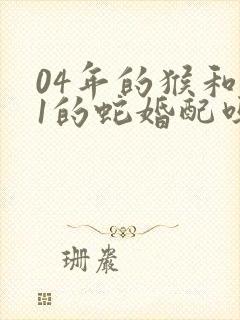 04年的猴和
1的蛇婚配
珊岩